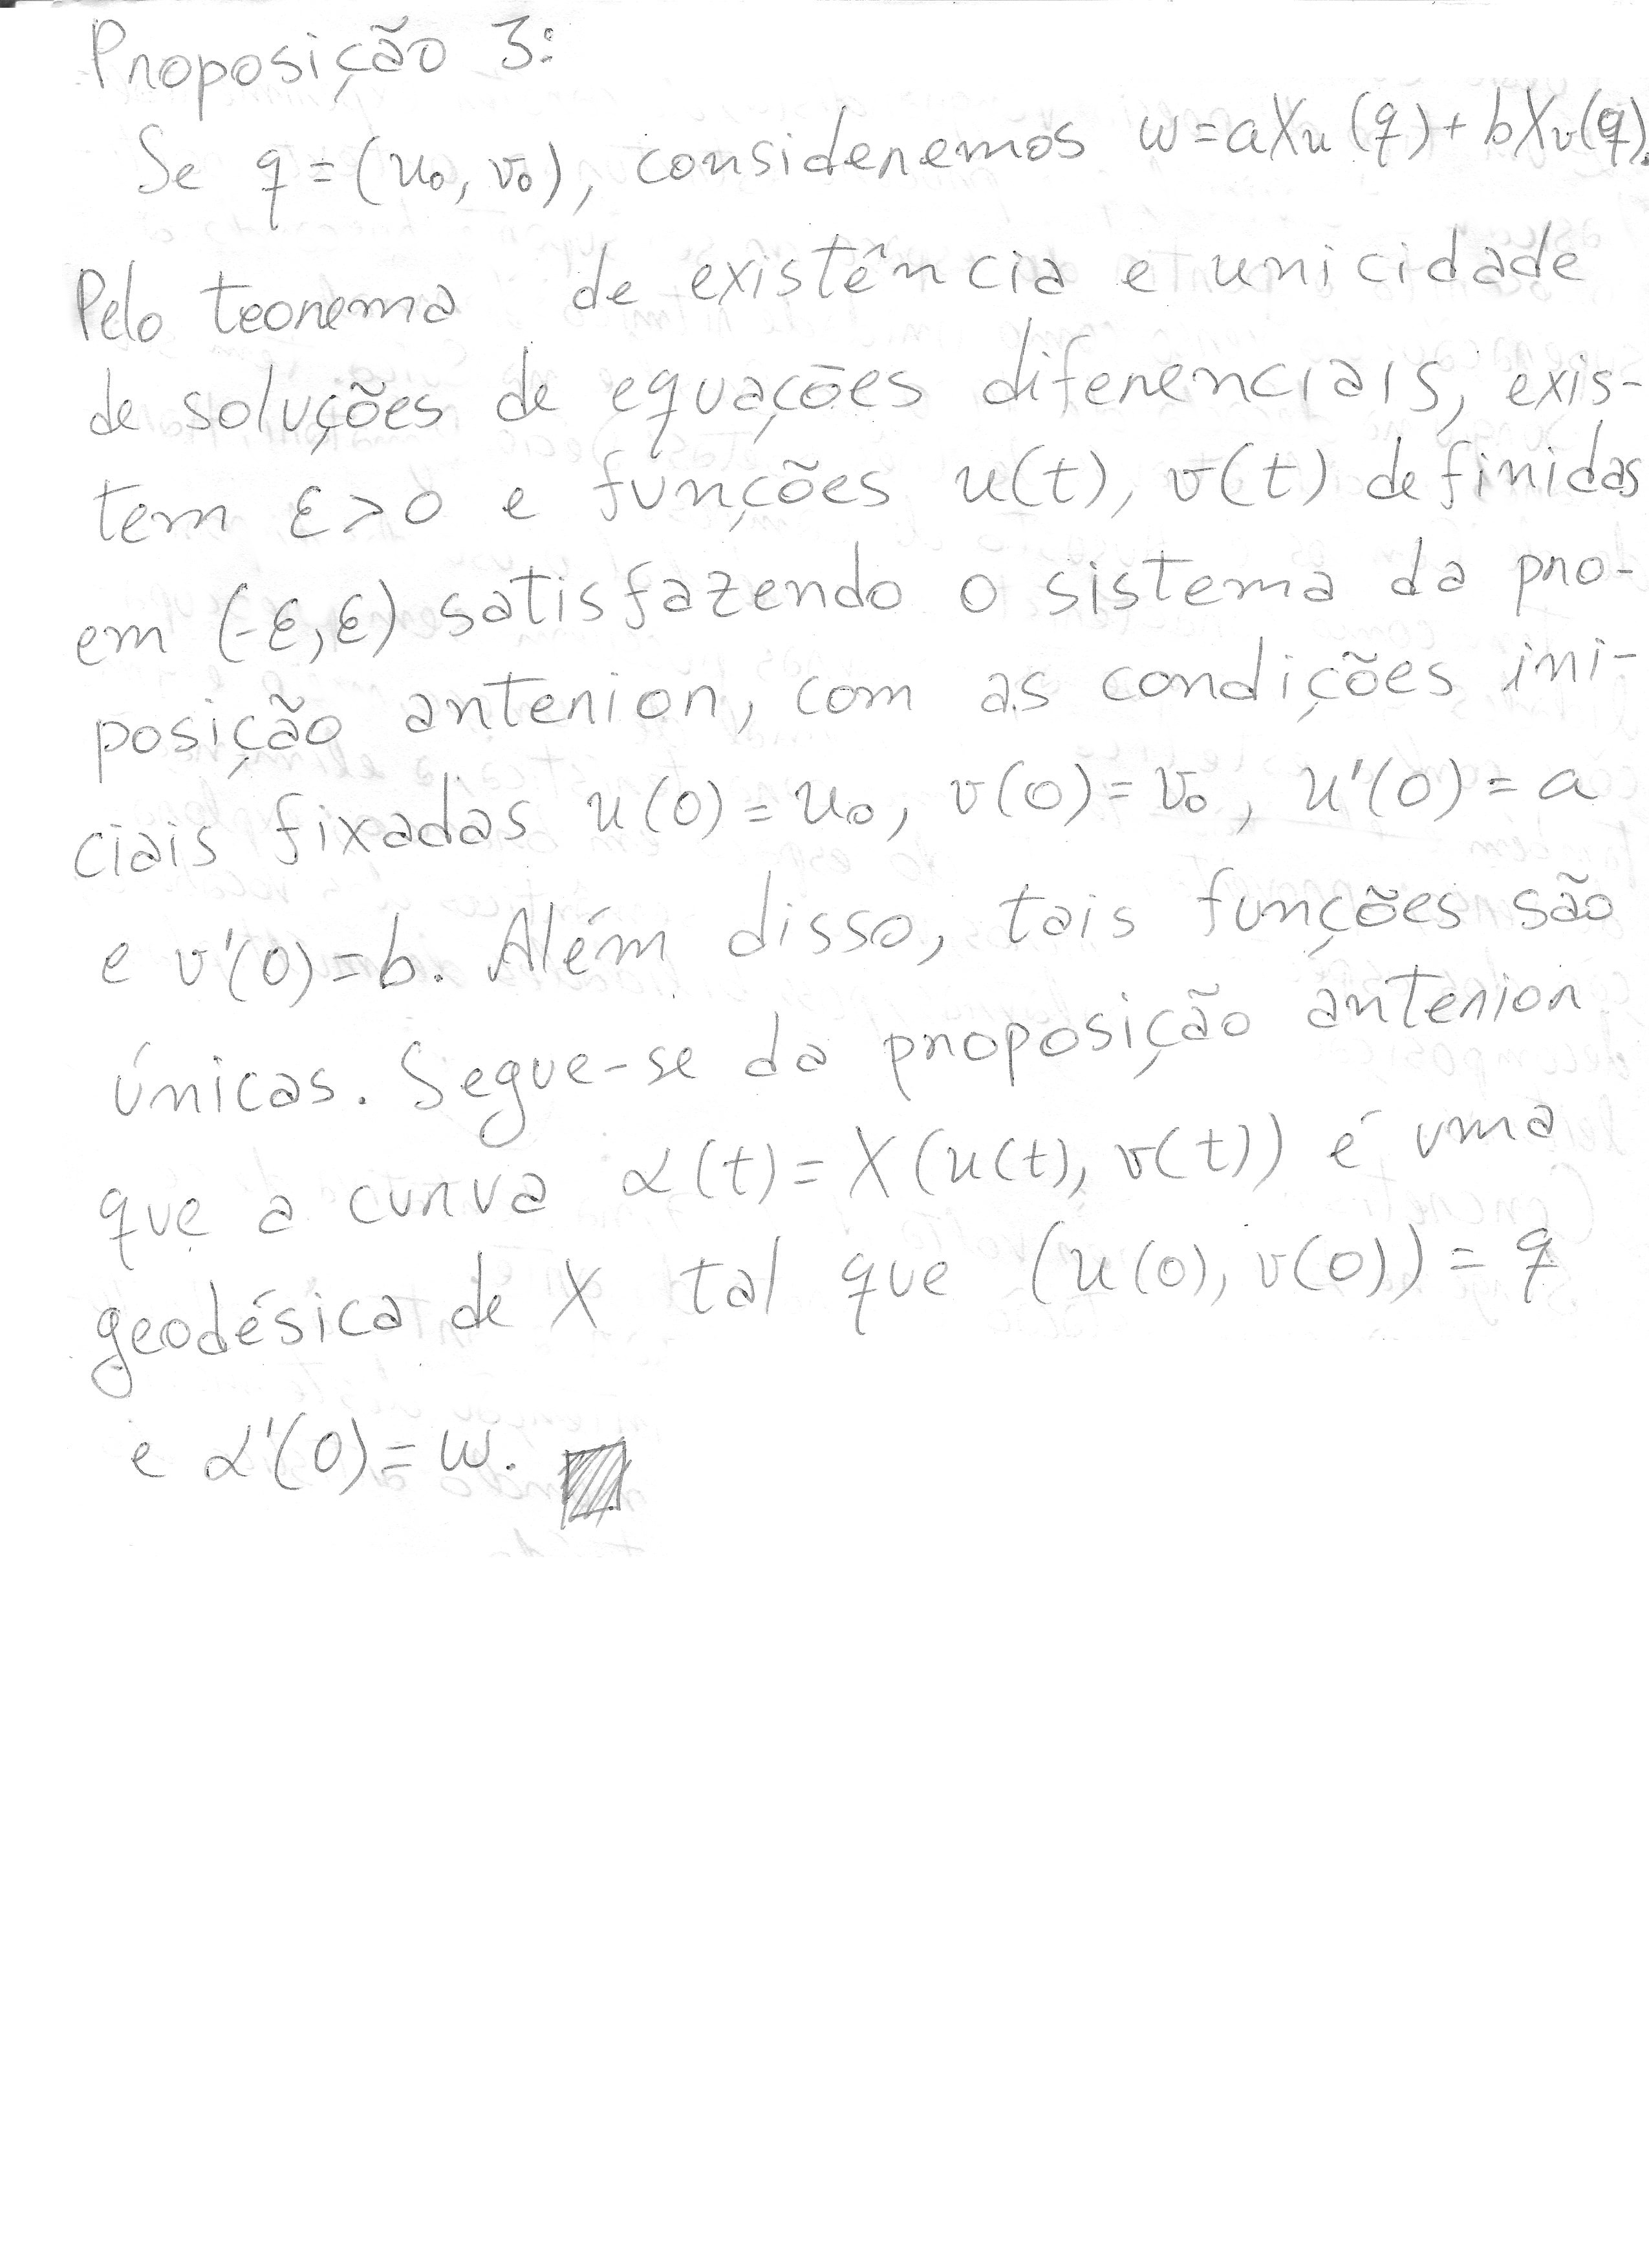 Proposição 3:
Se q = (u₀, v₀), consideremos w = aXu(q) + bXv(q).
Pelo teorema de existência e unicidade
de soluções de equações diferenciais, exis-
tem ε > 0 e funções u(t), v(t) definidas
em (-ε, ε) satisfazendo o sistema da pro-
posição anterior, com as condições ini-
ciais fixadas u(0) = u₀, v(0) = v₀, u'(0) = a
e v'(0) = b. Além disso, tais funções são
únicas. Segue-se da proposição anterior
que a curva α(t) = X(u(t), v(t)) é uma
geodésica de X tal que (u(0), v(0)) = q
e α'(0) = w.